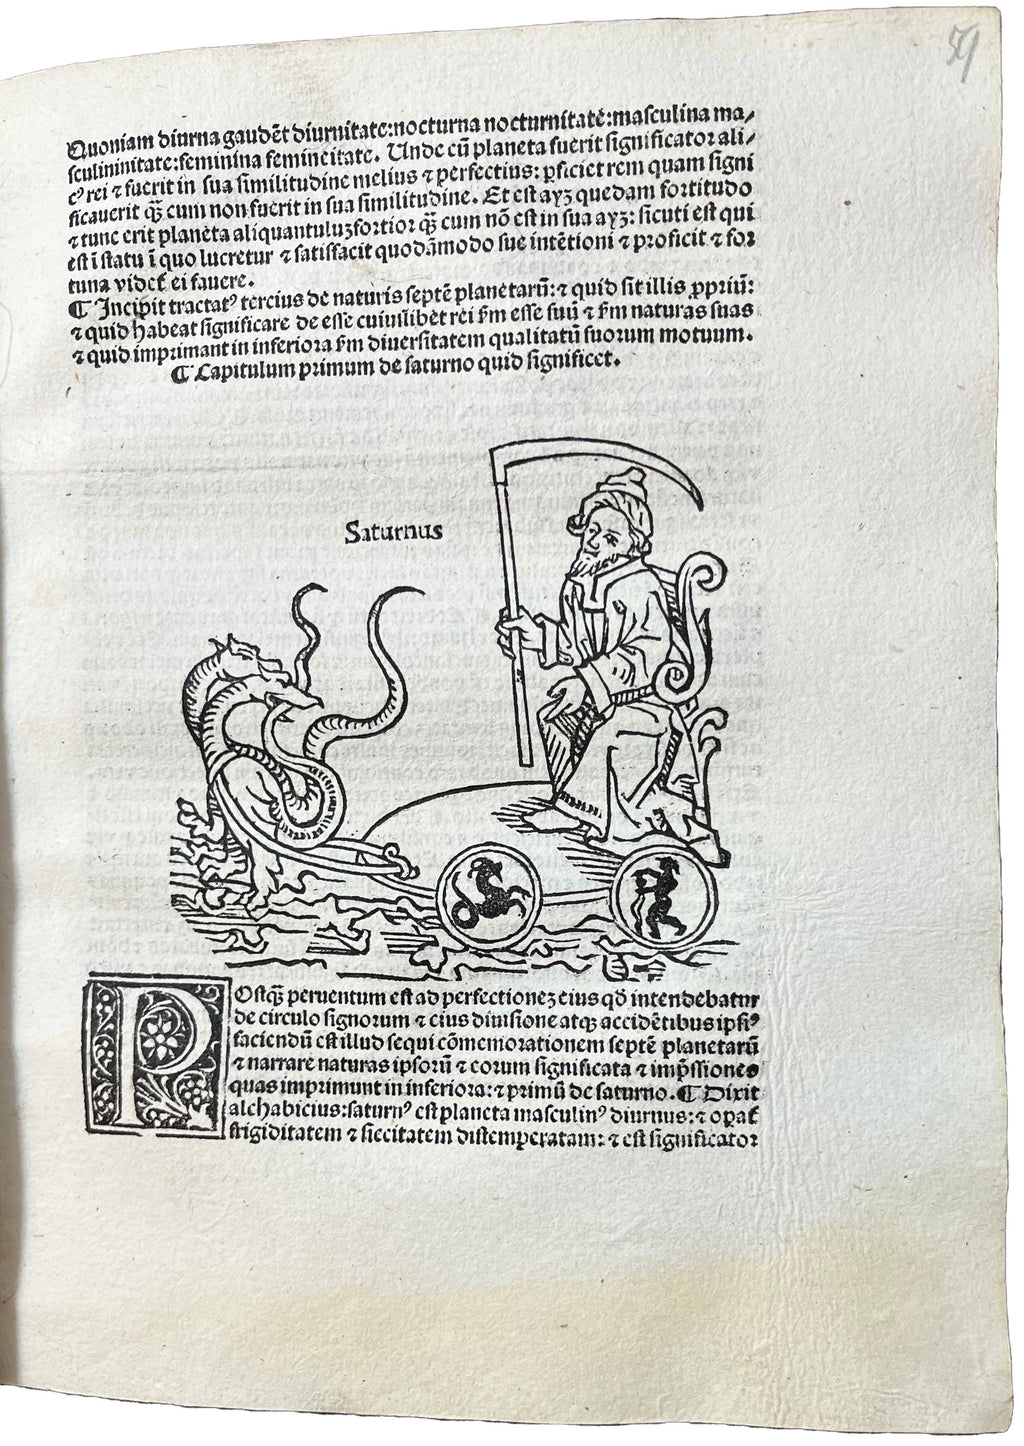 59
Quoniam diurna gaudēt diurnitate:nocturna nocturnitatē:masculina ma/
sculininitate:feminina femineitate. Unde cū planeta fuerit significator ali/
cꝰ rei ⁊ fuerit in sua similitudine melius ⁊ perfectius: ꝑficiet rem quam signi
ficauerit qꝫ̄ cum non fuerit in sua similitudine. Et est ayȝ quedam fortitudo
⁊ tunc erit planeta aliquantuluȝ fortior qꝫ̄ cum nō est in sua ayȝ: sicuti est qui
est ī statu ī quo lucretur ⁊ satisfacit quodāmodo sue intētioni ⁊ proficit ⁊ for
tuna videt̄ ei fauere.
¶ Incipit tractatꝰ tercius de naturis septē planetarū: ⁊ quid sit illis ꝓpriū:
⁊ quid habeat significare de esse cuiuslibet rei fm̄ esse suū ⁊ fm̄ naturas suas
⁊ quid imprimant in inferiora fm̄ diuersitatem qualitatū suorum motuum.
¶ Capitulum primum de saturno quid significet.
Saturnus
POstqꝫ̄ peruentum est ad perfectioneȝ eius qd̄ intendebatur
de circulo signorum ⁊ eius diuisione atqꝫ accidētibus ipsiꝰ
faciendū est illud sequi cōmemorationem septē planetarū
⁊ narrare naturas ipsorū ⁊ eorum significata ⁊ imp̄ssiones
quas imprimunt in inferiora: ⁊ primū de saturno. ¶ Dixit
alchabicius:saturnꝰ est planeta masculinꝰ diurnus: ⁊ oꝑat̄
frigiditatem ⁊ siccitatem distemperatam: ⁊ est significator